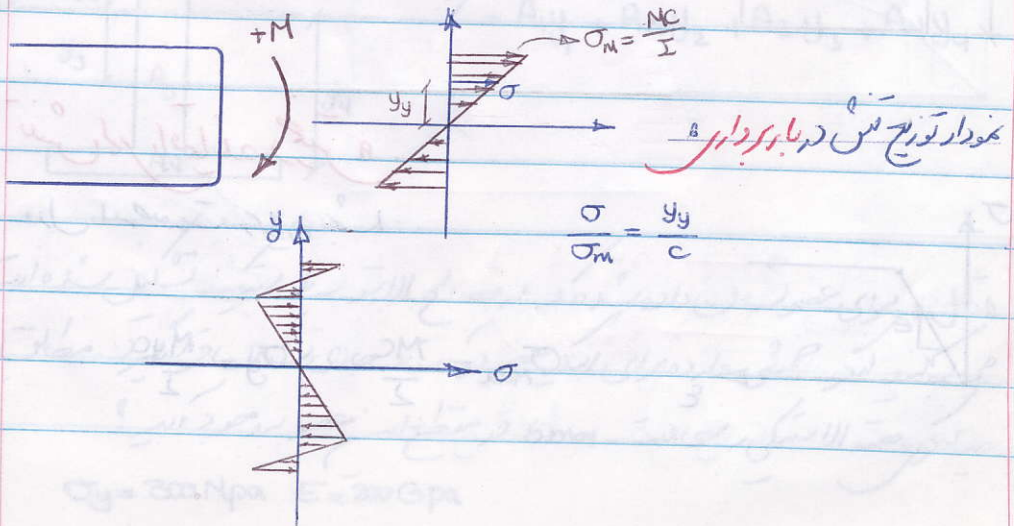 +M
σₘ = MC/I
y_y
σ
نمودار توزیع تنش در باربرداری :
σ/σₘ = y_y/c
y
σ